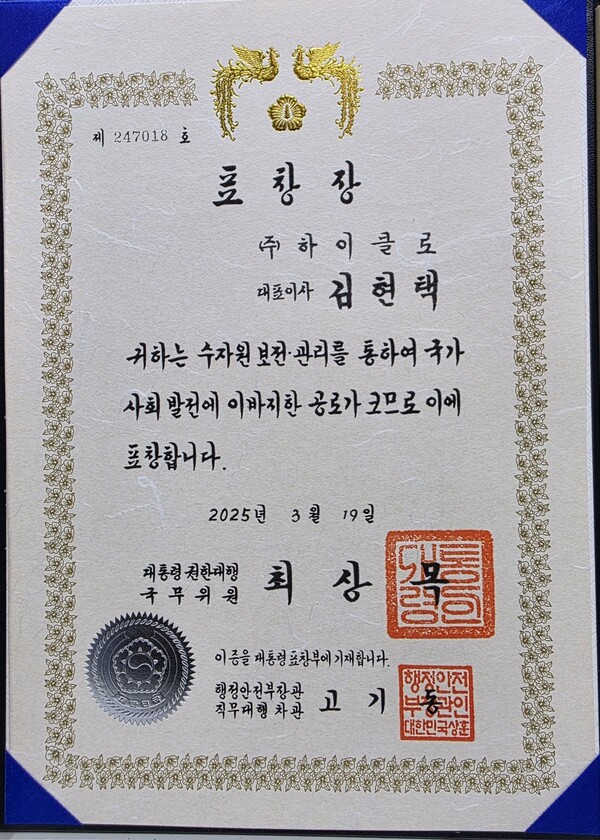 제 247018 호
표 창 장
(주) 하 이 클 로
대표이사 김 현 택
귀하는 수자원 보전·관리를 통하여 국가
사회 발전에 이바지한 공로가 크므로 이에
표창합니다.
2025년 3월 19일
대통령 권한대행
국 무 위 원 최 상 목
대통령의
이 증을 대통령 표창부에 기재합니다.
행정안전부장관
직무대행 차관 고 기 동
행정안전
부장관인
대한민국상훈